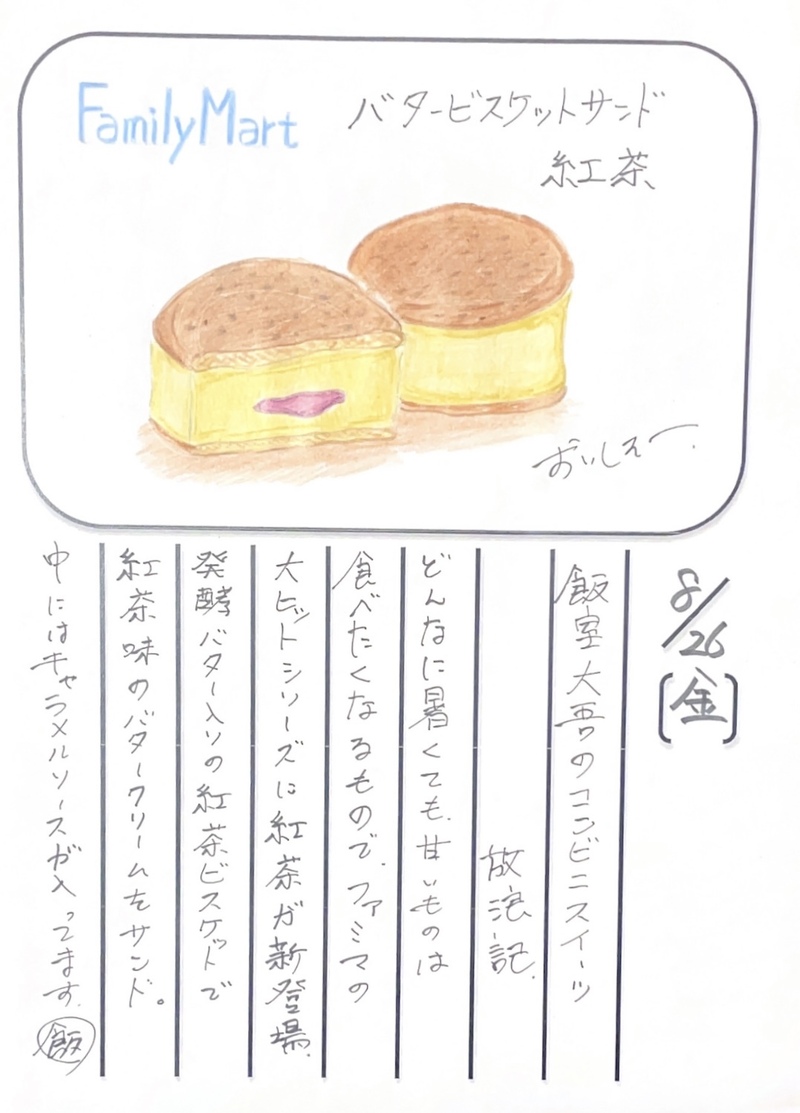 FamilyMart
バタービスケットサンド
紅茶
おいしえー.
8/26
[金]
飯室大吾のコンビニスイーツ
放浪記.
どんなに暑くても、甘いものは
食べたくなるもので、ファミマの
大ヒットシリーズに紅茶が新登場.
発酵バター入りの紅茶ビスケットで
紅茶味のバタークリームをサンド。
中にはキャラメルソースが入ってます.
飯